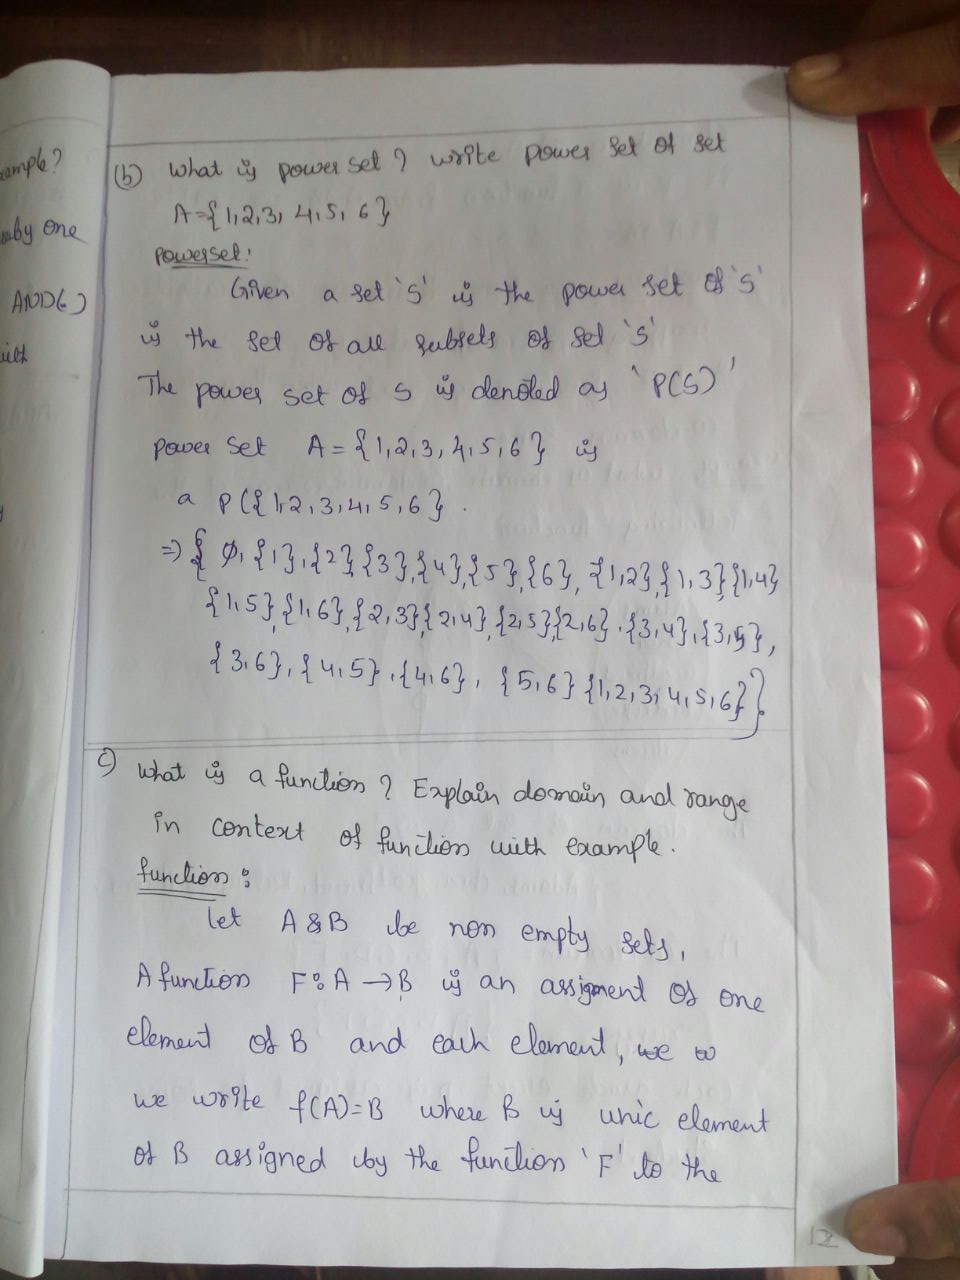 ample?
by one
AND(
(b) What is power set ? write power set of set
A={1,2,3, 4,5, 6}
powerset:
Given a set 's' is the power set of 's'
is the set of all subsets of set 's'
The power set of S is denoted as 'P(S)'
power set A = {1,2,3, 4,5,6} is
a P({1,2,3,4,5,6}.
=> { ∅, {1},{2},{3},{4},{5},{6}, {1,2},{1,3}{1,4}
{1,5},{1,6},{2,3}{2,4},{2,5}{2,6}.{3,4},{3,5},
{3,6},{4,5},{4,6}, {5,6}{1,2,3,4,5,6}}
c) What is a function ? Explain domain and range
in context of function with example.
function:
Let A & B be non empty sets,
A function F:A →B is an assigment of one
element of B and each element, we w
we write f(A)=B where B is unic element
of B assigned by the function 'F' to the
12